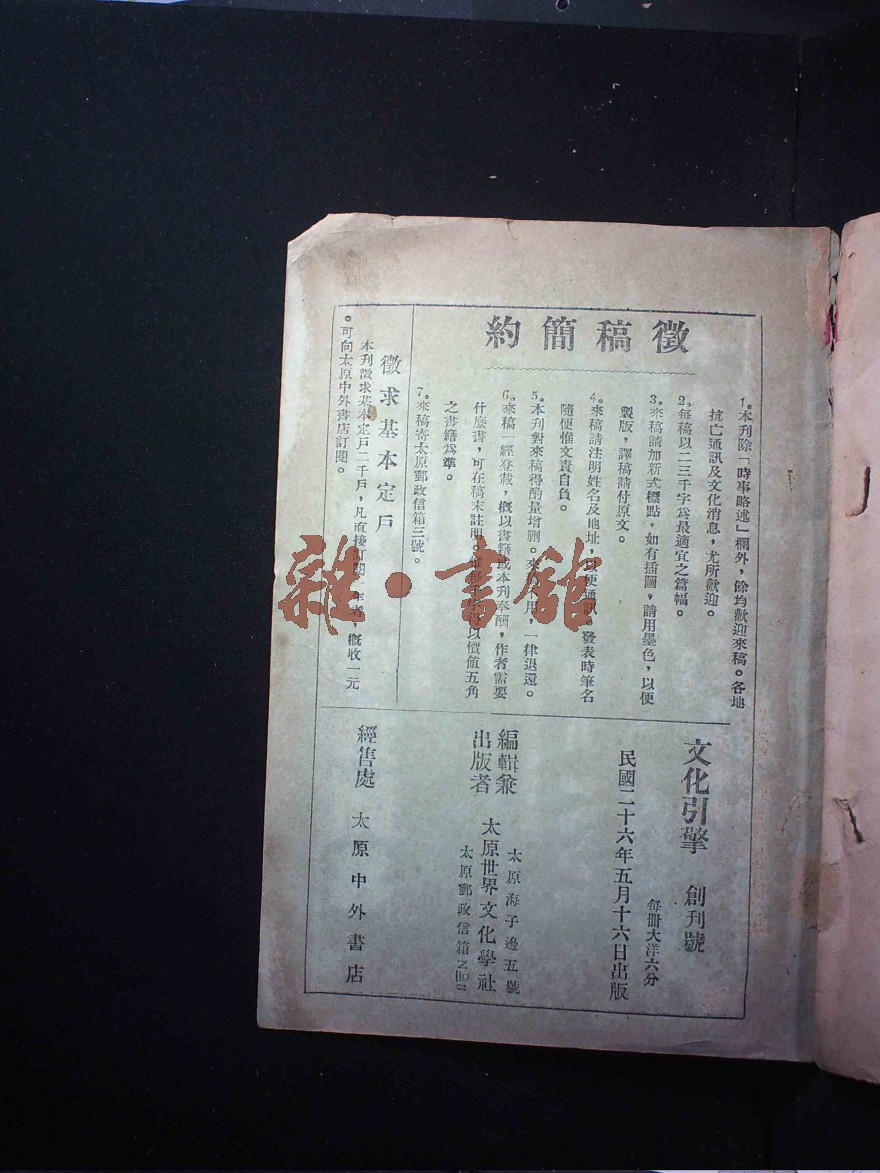 徵稿簡約
1。本刊除「時事略述」欄外，餘均歡迎來稿。各地
抗亡通訊及文化消息，尤所歡迎。
2。每稿以二三千字爲最適宜之篇幅。
3。來稿請加新式標點，如有插圖，請用墨色，以便
製版，譯稿請付原文。
4。來稿請注明姓名及地址，以便通訊。發表時筆名
隨便惟文責自負。
5。本刊對來稿得酌量增删。來 用，一律退還。
6。來稿一經登載，概以書籍或本刊奉酬，作者需要
什麼書，可在稿末註明。 以價值五角
之書籍爲準。
7。來稿寄太原郵政信箱三號。
徵求基本定戶
本刊徵求基本定戶二千戶，凡直接訂閱 年者，概收一元
。可向太原中外書店訂閱。
文化引擎 創刊號
每册大洋六分
民國二十六年五月十六日出版
編輯兼
出版者
太原海子邊五號
太原世界文化學社
太原郵政信箱No3
經售處 太原中外書店
雜·書館